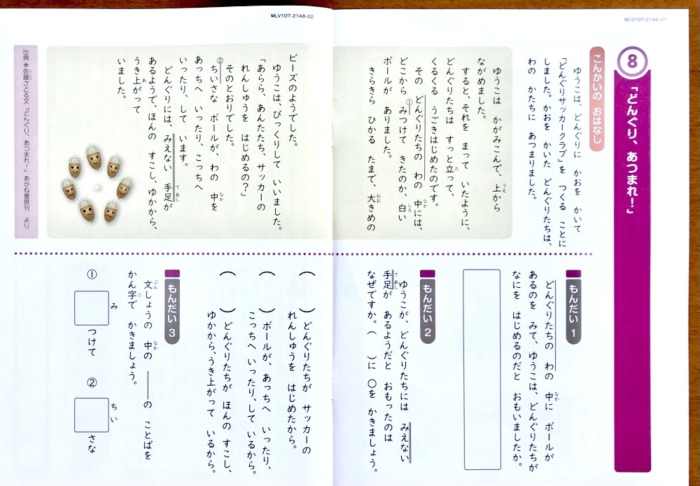 MLV107-21A6-02
MLV107-21A6-01
8
「どんぐり、あつまれ！」
こんかいの おはなし
ゆうこは、どんぐりに かおを かいて
「どんぐりサッカークラブ」を つくる ことに
しました。かおを かいた どんぐりたちは、
わの かたちに あつまりました。
ゆうこは かがみこんで、上から
うえ
ながめました。
すると、それを まって いたように、
どんぐりたちは すっと 立って、
た
くるくる うごきはじめたのです。
その どんぐりたちの わの 中には、
なか
どこから ①みつけて きたのか、白い
しろ
ボールが ありました。
きらきら ひかる たまで、大きめの
おお
ビーズのようでした。
ゆうこは、びっくりして いいました。
「あらら、あんたたち、サッカーの
れんしゅうを はじめるの？」
そのとおりでした。
②ちいさな ボールが、わの 中を
なか
あっちへ いったり、こっちへ
いったり、して います。
どんぐりには、みえない 手足が
てあし
あるようで、ほんの すこし、ゆかから、
うき上がって
あ
いました。
出典★佐藤さとる文「どんぐり、あつまれ！」あかね書房刊 より
もんだい 1
どんぐりたちの わの 中に ボールが
なか
あるのを みて、ゆうこは、どんぐりたちが
なにを はじめるのだと おもいましたか。
もんだい 2
ゆうこが、どんぐりたちには みえない
手足が あるようだと おもったのは
てあし
なぜですか。（ ）に ○を かきましょう。
（ ）どんぐりたちが サッカーの
れんしゅうを はじめたから。
（ ）ボールが、あっちへ いったり、
こっちへ いったり、して いるから。
（ ）どんぐりたちが ほんの すこし、
ゆかから、うき上がって いるから。
もんだい 3
文しょうの 中の ――の ことばを
ぶん なか
かん字で かきましょう。
じ
① み つけて
② ちい さな